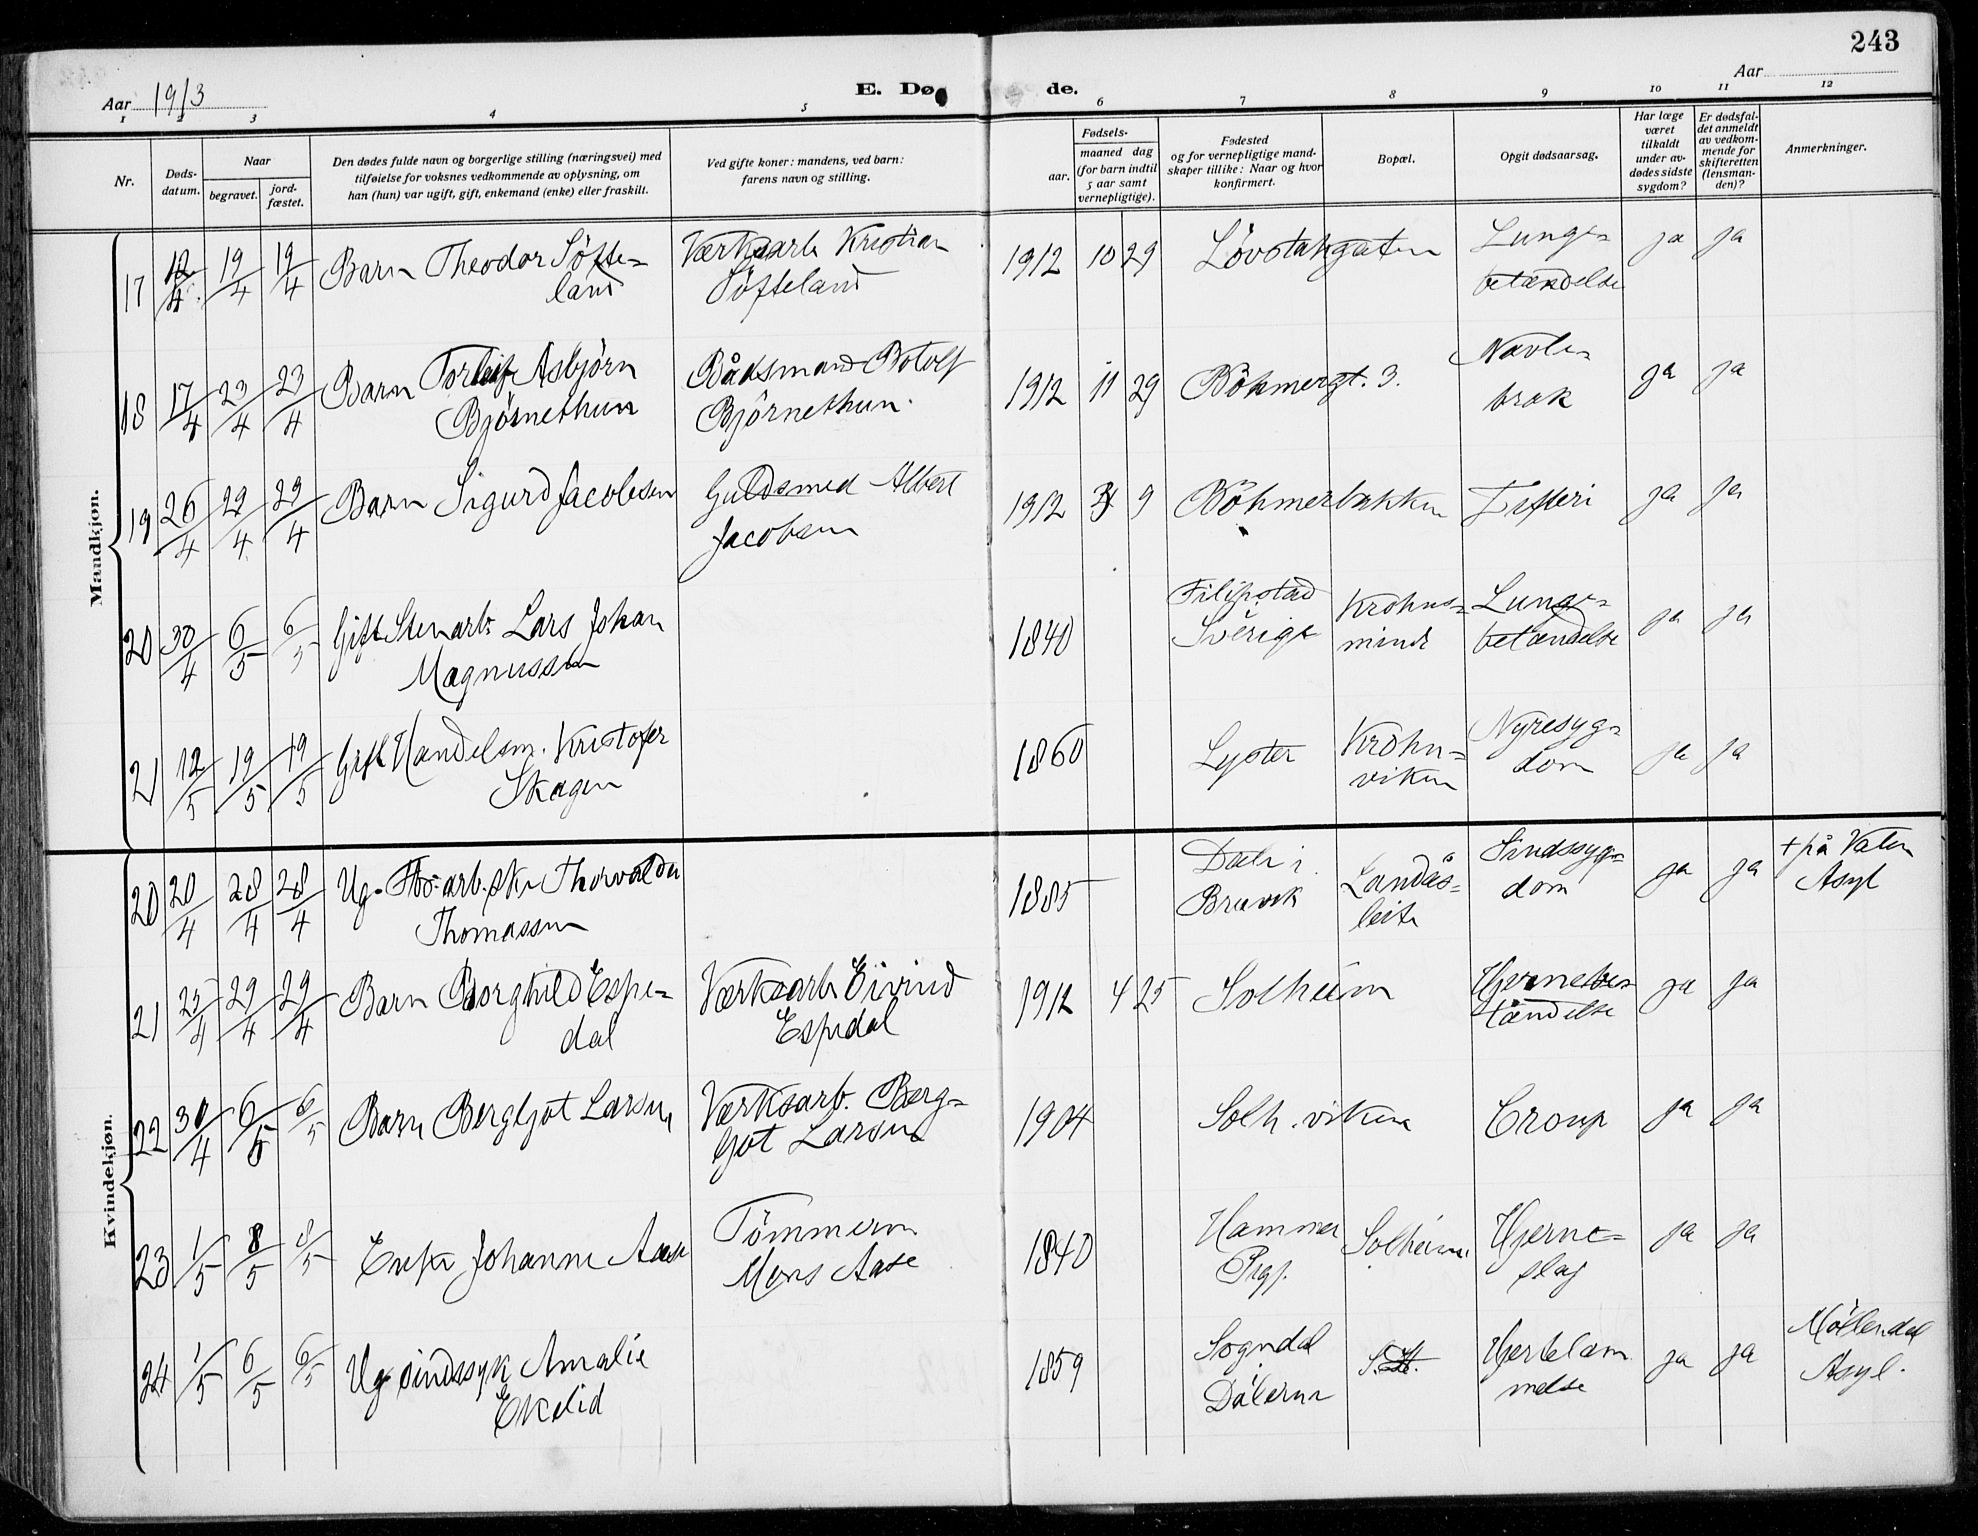 243
Aar 1913
E. Dø de.
Aar
1 2 3 4 5 6 7 8 9 10 11 12
Nr.
Døds-
datum.
Naar
begravet.
jord-
fæstet.
Den dødes fulde navn og borgerlige stilling (næringsvei) med
tilføielse for voksnes vedkommende av oplysning, om
han (hun) var ugift, gift, enkemand (enke) eller fraskilt.
Ved gifte koner: mandens, ved barn:
farens navn og stilling.
Fødsels-
aar.
maaned dag
(for barn indtil
5 aar samt
vernepligtige).
Fødested
og for vernepligtige mand-
skaper tillike: Naar og hvor
konfirmert.
Bopæl.
Opgit dødsaarsag.
Har læge
været
tilkaldt
under av-
dødes sidste
sygdom?
Er dødsfal-
det anmeldt
av vedkom-
mende for
skifteretten
(lensman-
den)?
Anmerkninger.
Mandkjøn.
17 19/4 19/4 Barn Theodor Söfte-
land
Værksarb Kristian
Söfteland
1912 10 29 Lövstakgaten
Lunge-
betændelse
ja ja
18 17/4 23/4 23/4 Barn Torleif Asbjörn
Björnethun
Bådsmand Botolf
Björnethun.
1912 11 29 Böhmergt. 3.
Navle-
brok
ja ja
19 26/4 29/4 29/4 Barn Sigurd Jacobsen
Guldsmed Albert
Jacobsen
1912 9 Böhmerbakken Difteri ja ja
20 30/4 6/5 6/5 Gift Stenarb. Lars Johan
Magnussen
1840
Filipstad
Sverige
Krohns-
minde
Lunge-
betændelse
ja ja
21 12/5 19/5 19/5 Gift Handelsm. Kristofer
Skagen
1860 Lyster
Krohn-
viken
Nyresyg-
dom
ja ja
Kvindekjøn.
20 20/4 28/4 28/4 Ug. arb.ske Thorvalda
Thomassen
1885
Dale i
Bruvik
Landås-
leite
Sindssyg-
dom
ja ja
+ på Vaten
Asyl
21 25/4 29/4 29/4 Barn Borghild Espe-
dal
Værksarb Eivind
Espedal
1912 4 25 Solheim
Hjernebe-
tændelse
ja ja
22 30/4 6/5 6/5 Barn Bergljot Larsen
Værksarb. Berg-
Got Larsen
1904 Solh.viken Croup ja ja
23 1/5 8/5 8/5 Enke Johanne Aase
Tömmerm
Mons Aase
1840
Hammer
Prgj.
Solheim
Hjerne-
slag
ja ja
24 1/5 6/5 6/5 Ug sindssyk Amalie
Ekelid
1859
Sogndal
Dalerne
Hjertelam
melse
ja ja
Möllendal
Asyl.